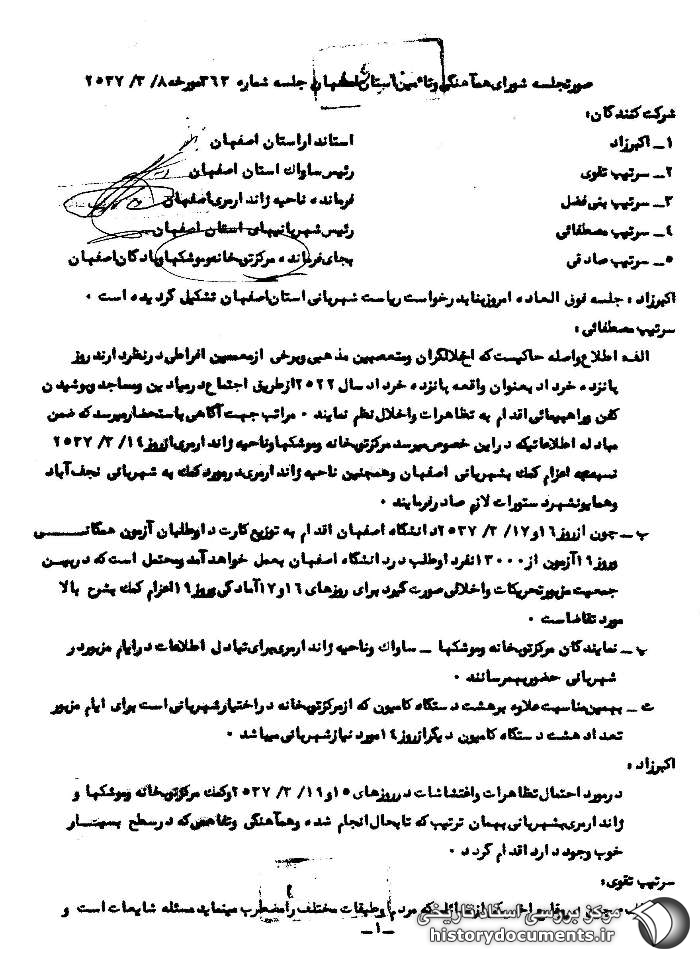 صورتجلسه شورای هم‌آهنگی و تامین استان اصفهان جلسه شماره ۳۶۳ مورخه ۸/ ۳/ ۲۵۳۷
شرکت کنندگان:
۱ـ اکبرزاد استاندار استان اصفهان
۲ـ سرتیپ تقوی رئیس ساواک استان اصفهان
۳ـ سرتیپ بنی‌فضل فرمانده ناحیه ژاندارمری اصفهان
۴ـ سرتیپ مصطفائی رئیس شهربانیهای استان اصفهان
۵ـ سرتیپ صادقی بجای فرمانده مرکز توپخانه و موشکها و پادگان اصفهان
اکبرزاد: جلسه فوق العاده امروز بنا بدرخواست ریاست شهربانی استان اصفهان تشکیل گردیده است ۰
سرتیپ مصطفائی:
الف: اطلاع واصله حاکیست که اخلالگران و متعصبین مذهبی و برخی از محصلین افراطی در نظر دارند روز
پانزده خرداد بعنوان واقعه پانزده خرداد سال ۲۵۲۲ از طریق اجتماع در میادین و مساجد و پوشیدن
کفن و راهپیمائی اقدام به تظاهرات و اخلال نظم نمایند ۰ مراتب جهت آگاهی باستحضار میرسد که ضمن
مبادله اطلاعاتیکه در این خصوص میرسد مرکز توپخانه و موشکها و ناحیه ژاندارمری از روز ۱۴/ ۳/ ۲۵۳۷
نسبت به اعزام کمک بشهربانی اصفهان و همچنین ناحیه ژاندارمری در مورد کمک به شهربانی نجف‌آباد
و همایونشهر دستورات لازم صادر فرمایند ۰
ب ـ چون از روز ۱۶ و ۱۷/ ۳/ ۲۵۳۷ دانشگاه اصفهان اقدام به توزیع کارت داوطلبان آزمون همگانی
و روز ۱۹ آزمون از ۱۳۰۰۰ نفر داوطلب در دانشگاه اصفهان بعمل خواهد آمد و محتمل است که در بین
جمعیت مزبور تحریکات و اخلالی صورت گیرد برای روزهای ۱۶ و ۱۷ آمادگی و روز ۱۹ اعزام کمک بشرح بالا
مورد تقاضاست ۰
پ ـ نمایندگان مرکز توپخانه و موشکها ـ ساواک و ناحیه ژاندارمری برای تبادل اطلاعات در ایام مزبور در
شهربانی حضور بهمرسانند ۰
ت ـ بهمین مناسبت علاوه بر هشت دستگاه کامیون که از مرکز توپخانه در اختیار شهربانی است برای ایام مزبور
تعداد هشت دستگاه کامیون دیگر از روز ۱۴ مورد نیاز شهربانی میباشد ۰
اکبرزاد:
در مورد احتمال تظاهرات و اغتشاشات در روزهای ۱۵ و ۱۹/ ۳/ ۲۵۳۷ و کمک مرکز توپخانه و موشکها و
ژاندارمری بشهربانی بهمان ترتیب که تابحال انجام شده و هم‌آهنگی و تفاهمی که در سطح بسیار
خوب وجود دارد اقدام گردد ۰
سرتیپ تقوی:
وقایع اخیر یکی از مسائلی که مردم و طبقات مختلف را مضطرب مینماید مسئله شایعات است و
ـ۱ـ
مرکز بررسی اسناد تاریخی
historydocuments.ir